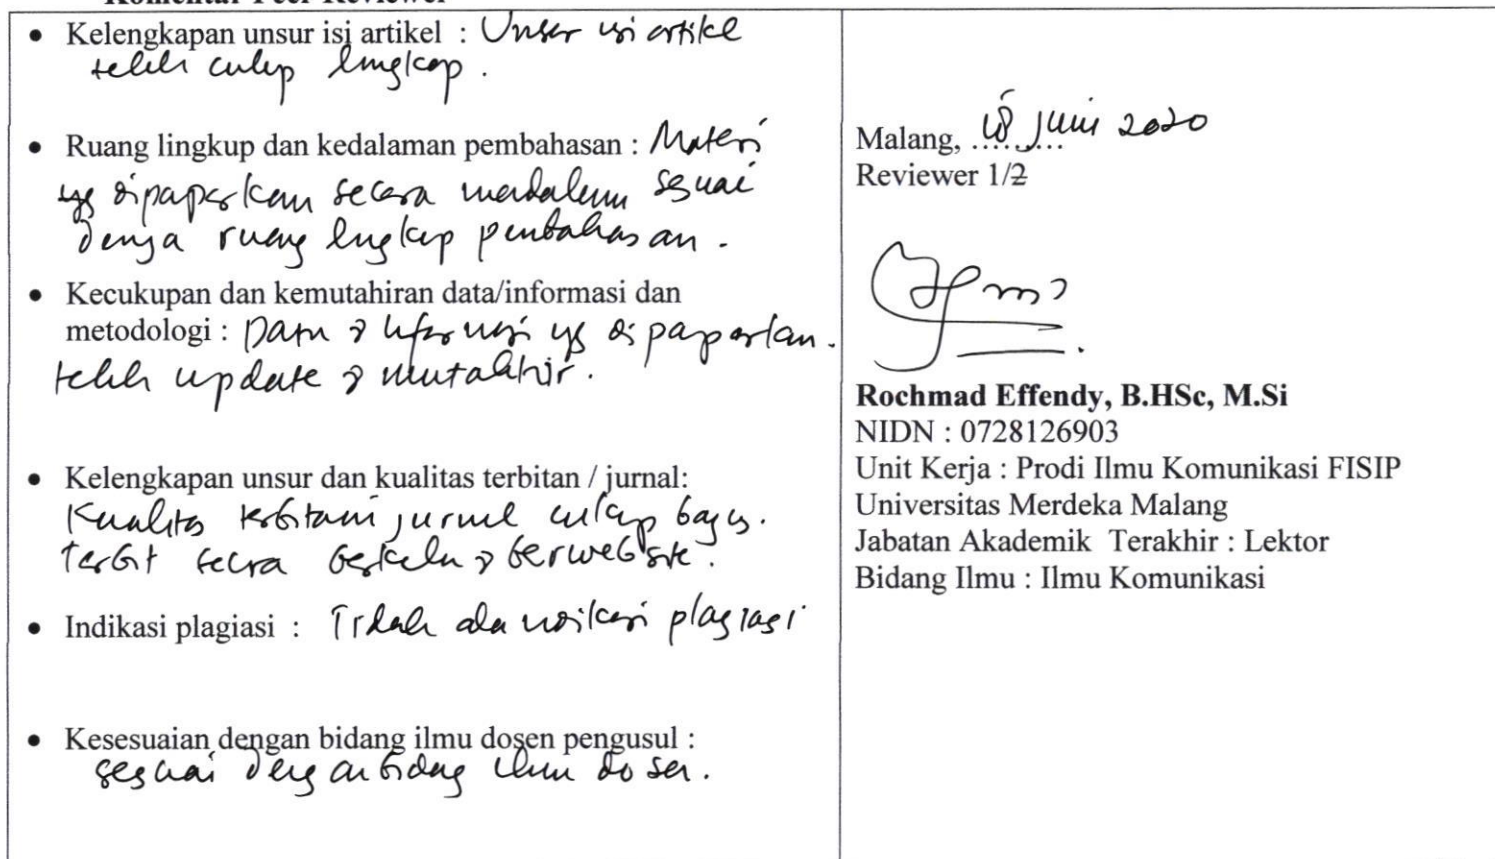 Komentar Peer Reviewer
• Kelengkapan unsur isi artikel : Unsur isi artikel
telah cukup lengkap.
• Ruang lingkup dan kedalaman pembahasan : Materi
yg dipaparkan secara mendalam sesuai
dengan ruang lingkup pembahasan.
• Kecukupan dan kemutahiran data/informasi dan
metodologi : Data & informasi yg dipaparkan.
telah update & mutakhir.
• Kelengkapan unsur dan kualitas terbitan / jurnal:
Kualitas terbitan jurnal cukup bagus.
terbit secara berkala & berwebsite.
• Indikasi plagiasi : Tidak ada indikasi plagiasi
• Kesesuaian dengan bidang ilmu dosen pengusul :
sesuai dengan bidang ilmu dosen.
Malang, 18 Juni 2020
Reviewer 1/2
Rochmad Effendy, B.HSc, M.Si
NIDN : 0728126903
Unit Kerja : Prodi Ilmu Komunikasi FISIP
Universitas Merdeka Malang
Jabatan Akademik Terakhir : Lektor
Bidang Ilmu : Ilmu Komunikasi